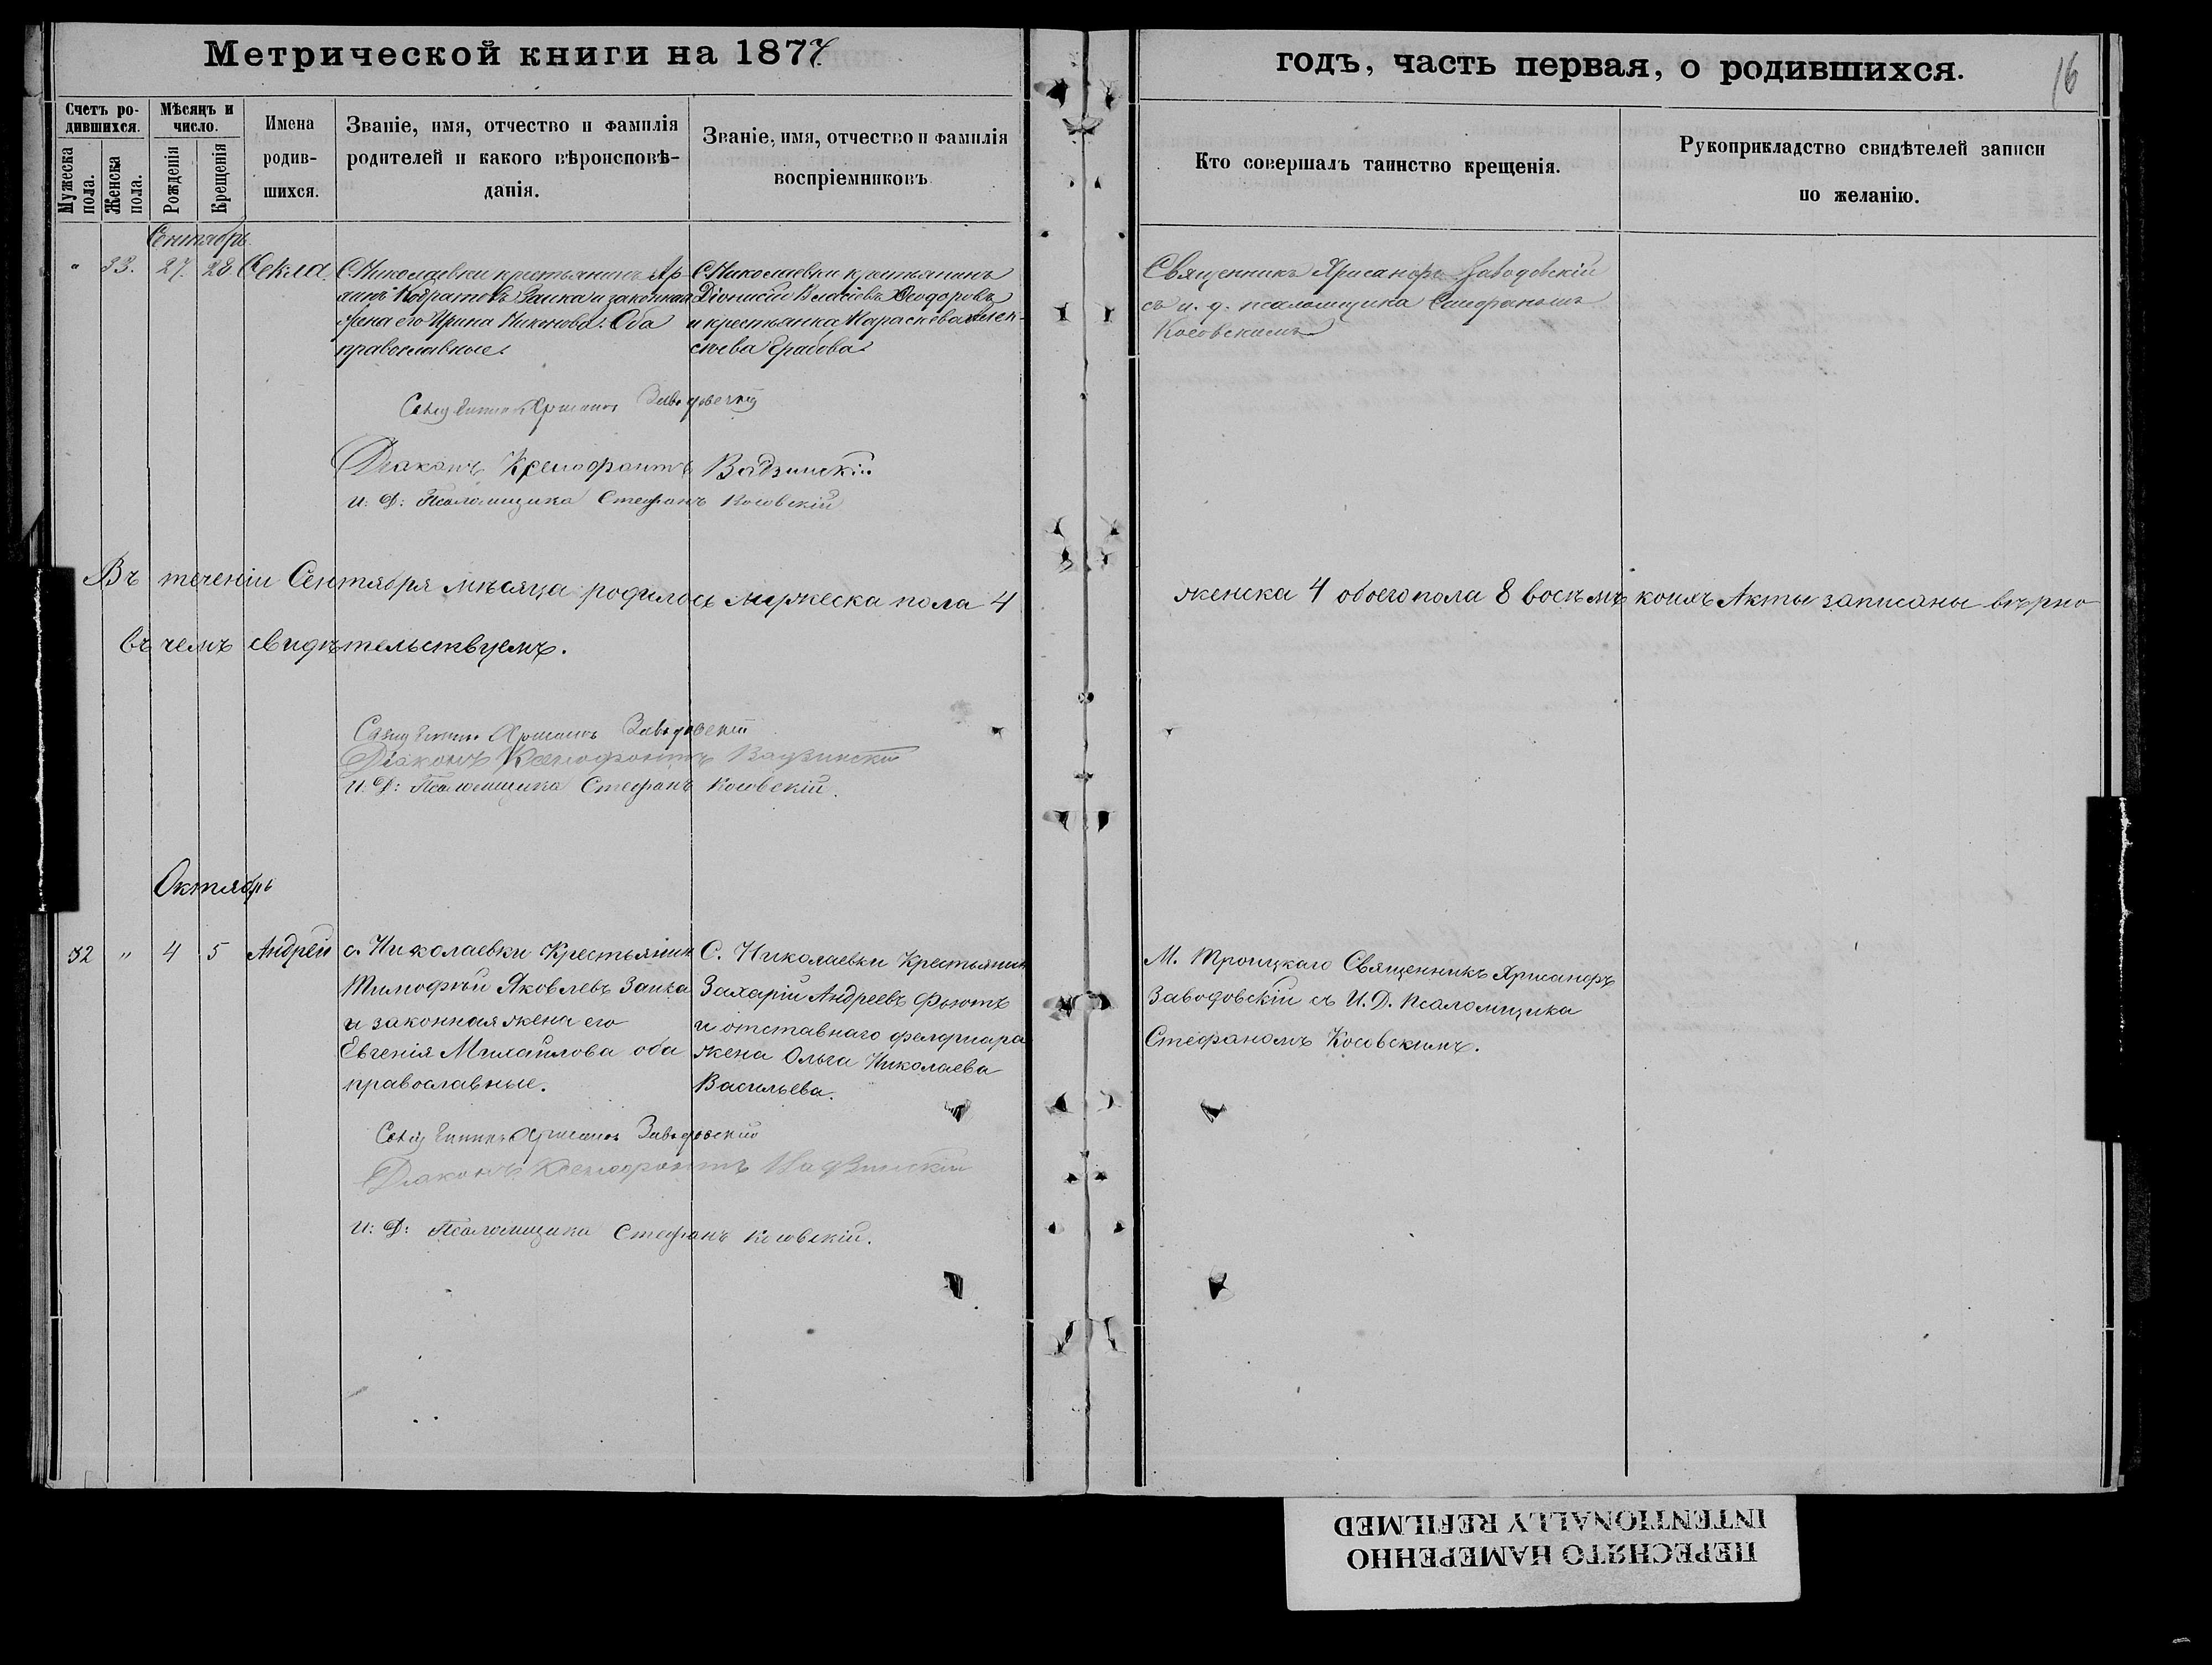 Метрической книги на 1877
годъ, часть первая, о родившихся.
16
Счетъ ро-
дившихся.
Мужеска
пола.
Женска
пола.
Мѣсяцъ и
число.
Рожденія
Крещенія
Имена
родив-
шихся.
Званіе, имя, отчество и фамилія
родителей и какого вѣроисповѣ-
данія.
Званіе, имя, отчество и фамилія
воспріемниковъ
Кто совершалъ таинство крещенія.
Рукоприкладство свидѣтелей записи
по желанію.
Сентябрь
" 33. 27. 28 Ѳекла
С. Николаевки крестьянинъ
Заика и законная
жена его Ирина Никонова. Оба
православные.
С. Николаевки крестьянинъ
Діонисій Власіевъ Ѳеодоровъ
и крестьянка Параскева Алек-
сѣева
Священникъ Хрисанфъ Заводовскій
съ и. д. псаломщика Стефаномъ
Косовскимъ
Священникъ Хрисанфъ Заводовскій
Діаконъ Ксенофонтъ Вадзинскій
И: Д: Псаломщика Стефанъ Косовскій
Въ теченіи Сентября мѣсяца родилось мужеска пола 4
женска 4 обоего пола 8 восѣмъ коихъ Акты записаны вѣрно
въ чемъ свидѣтельствуемъ.
Священникъ Хрисанфъ Заводовскій
Діаконъ Ксенофонтъ Вадзинскій
И: Д: Псаломщика Стефанъ Косовскій.
Октябрь
32 " 4 5 Андрей
с. Николаевки Крестьянин
Тимофѣй Яковлевъ Заика
и законная жена его
Евгенія Михайлова оба
православные.
С. Николаевки Крестьянин
Захарій Андреевъ Фьютъ
и отставнаго
жена Ольга Николаева
Васильева.
М. Троицкаго Священникъ Хрисанфъ
Заводовскій съ И. Д. Псаломщика
Стефаномъ Косовскимъ.
Священникъ Хрисанфъ Заводовскій
Діаконъ Ксенофонтъ Вадзинскій
И: Д: Псаломщика Стефанъ Косовскій.
ПЕРЕСНЯТО НАМЕРЕННО
INTENTIONALLY REFILMED